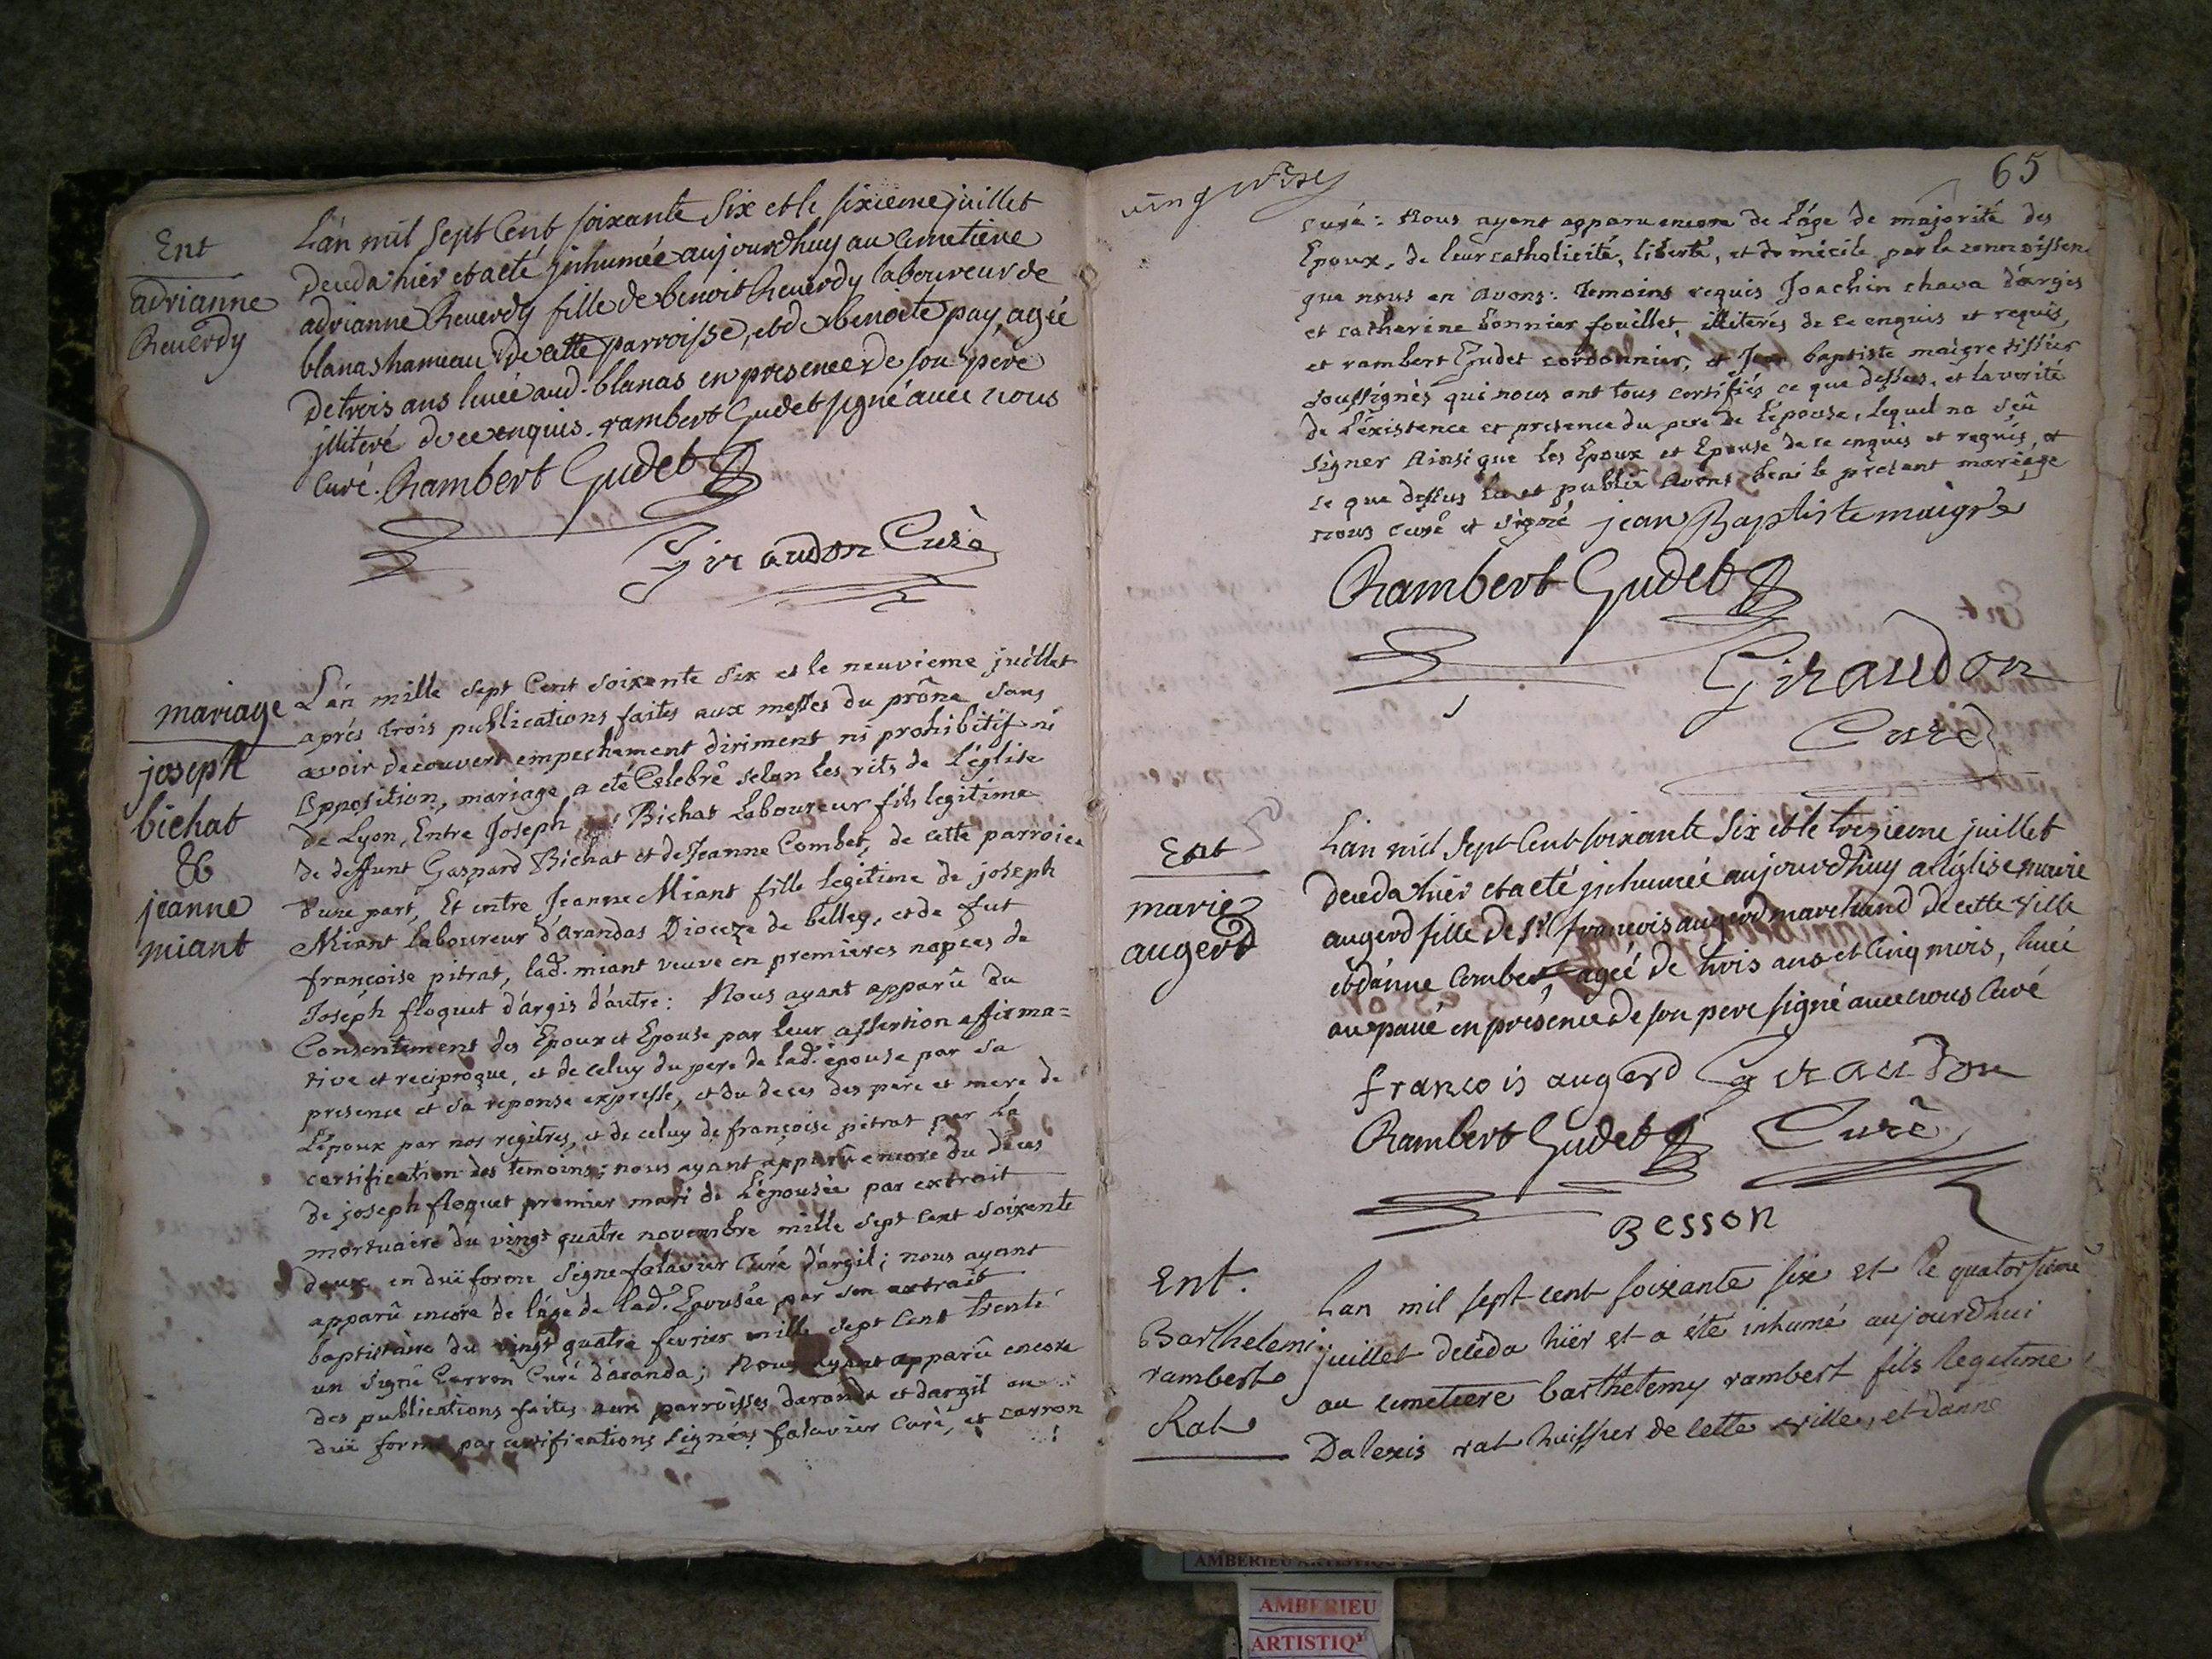 Ent
adrianne
Reverdy
L'an mil sept Cent soixante Six et le sixieme juillet
deceda hier et a eté jnhumée aujourdhuy au Cimetiere
adrianne Reverdy fille de benoit Reverdy laboureur de
blanas hameau de cette parroisse, et de benoite pay, agée
de trois ans levée aud. blanas en presence de son pere
jlliteré de ce enquis. rambert Gudet signé avec nous
Curé. Rambert Gudet
Giraudon Curé
mariage
joseph
bichat
&
jeanne
miant
L'an mille sept Cent soixante Six et le neuvieme juillet
aprés trois publications faites aux messes du prône sans
avoir decouvert empechement diriment ni prohibitif ni
Opposition, mariage a eté Celebré selon les rits de L'église
de Lyon, Entre Joseph Bichat Laboureur fils legitime
de deffunt Gaspard Bichat et de Jeanne Combet, de cette parroice
d'une part, Et entre Jeanne Miant fille legitime de joseph
Miant laboureur d'Arandas Dioceze de belley, et de fut
françoise pitrat, lad. miant veuve en premieres nopces de
Joseph floquet d'argis d'autre: Nous ayant apparû du
Consentement des Epoux et Epouse par leur assertion affirma=
tive et reciproque, et de celuy du pere de lad. épouse par sa
presence et sa reponse expresse, et du deces des pere et mere de
L'époux par nos regitres, et de celuy de françoise pitrat par la
certification des temoins; nous ayant apparû encore du déces
de joseph floquet premier mari de L'épousée par extrait
mortuaire du vingt quatre novembre mille sept cent soixente
deux en duë forme Signe falavier Curé d'argil; nous ayant
apparû encore de l'áge de lad. Epousée par son extrait
baptistaire du vingt quatre fevrier mille sept Cent trente
un signé Carron Curé d'aranda; Nous ayant apparû encore
des publications faites aux parroisses daranda et dargil en
duë forme par certifications signées falavier Curé, et carron
65
curé: Nous ayant apparu encore de l'áge de majorité des
Epoux, de leur catholicité, liberté, et domécile par la connoissen
que nous en avons: temoins requis Joachin chava d'argis
et catherine bonnier fouillet, illiterés de ce enquis et requis,
et rambert Gudet cordonnier, et Jean baptiste maigre tissier
soussignés qui nous ont tous certifiés ce que dessus, et la verité
de L'éxistence et presence du pere de L'épouse, lequel na sçû
signer Ainsi que les Epoux et Epouse de ce enquis et requis, et
ce que dessus lu et publié avons beni le present mariage
nous curé et signé jean Baptiste maigre
Rambert Gudet
Giraudon
Curé
Ent
marie
augerd
L'an mil sept Cent soixante Six et le tresieme juillet
deceda hier et a eté jnhumée aujourdhuy a l'église marie
augerd fille de sr. françois augerd marchand de cette ville
et danne Combet, ageé de trois ans et Cinq mois, levée
au pavé en presence de son pere signé avec nous Curé
francois augerd Giraudon
Rambert Gudet Curé
Besson
Ent.
Barthelemi
rambert
Rat
Lan mil sept cent soixante six et le quatorsieme
juillet deceda hier et a été inhumé aujourdhui
au cimetiere barthelemy rambert fils legitime
Dalexis rat huissier de cette ville, et danne
AMBERIEU ARTISTIQUE
AMBERIEU
ARTISTIQ